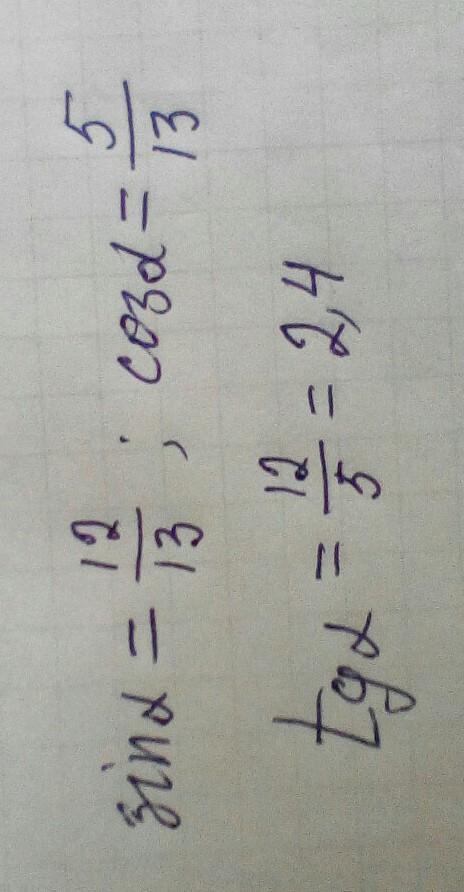 sinα = 12/13 ; cosα = 5/13
tgα = 12/5 = 2,4